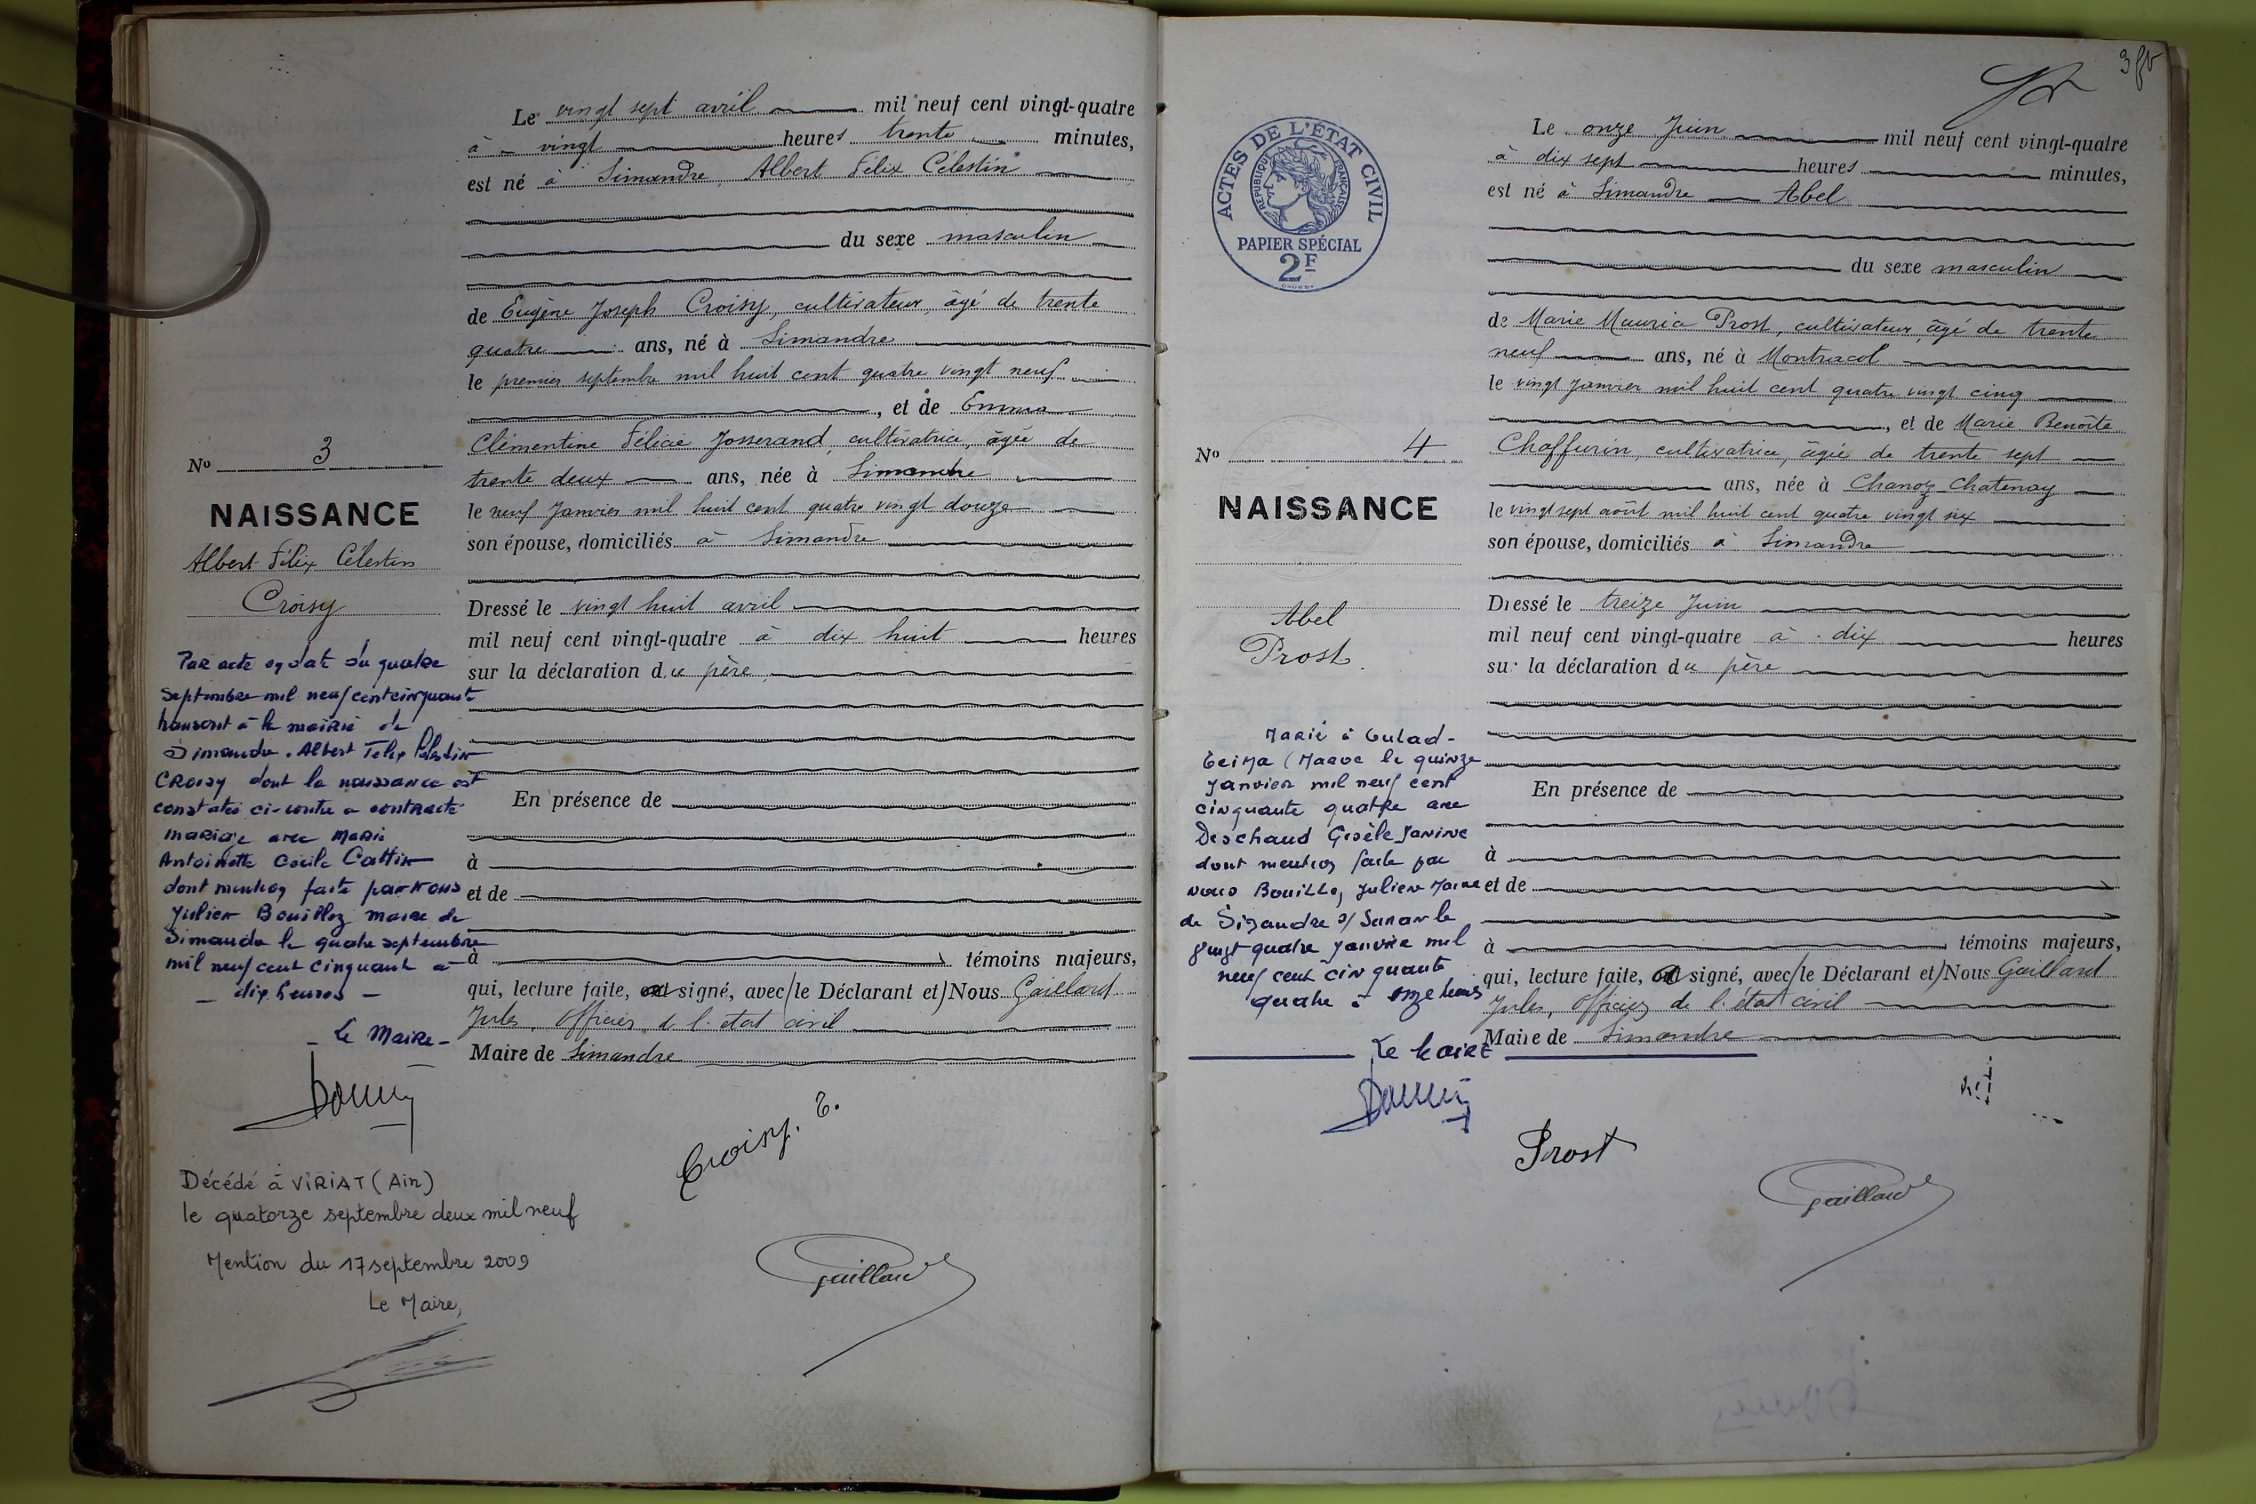 Le vingt sept avril mil neuf cent vingt-quatre
à vingt heures trente minutes,
est né à Simandre, Albert Félix Célestin
du sexe masculin
de Eugène Joseph Croisy, cultivateur, âgé de trente
quatre ans, né à Simandre
le premier septembre mil huit cent quatre vingt neuf
, et de Emma
Clémentine Félicie Josserand, cultivatrice, âgée de
trente deux ans, née à Simandre
le neuf Janvier mil huit cent quatre vingt douze
son épouse, domiciliés à Simandre
Dressé le vingt huit avril
mil neuf cent vingt-quatre à dix huit heures
sur la déclaration du père
En présence de
à
et de
à témoins majeurs,
qui, lecture faite, signé, avec (le Déclarant et) Nous Gaillard
Jules, Officier de l'état civil
Maire de Simandre
Croisy. E.
Gaillard
No 3
NAISSANCE
Albert Félix Célestin
Croisy
Par acte en date du quatre
Septembre mil neuf cent cinquante
transcrit à la mairie de
Simandre. Albert Felix Célestin
CROISY dont la naissance est
constatée ci-contre a contracté
mariage avec Marie
Antoinette Cécile Cattin
dont mention faite par Nous
Julien Bouilloz maire de
Simandre le quatre septembre
mil neuf cent cinquante à
– dix heures –
– Le Maire –
Décédé à VIRIAT (Ain)
le quatorze septembre deux mil neuf
Mention du 17 septembre 2009
Le Maire,
3
ACTES DE L'ÉTAT CIVIL
RÉPUBLIQUE FRANÇAISE
PAPIER SPÉCIAL
2F
Le onze Juin mil neuf cent vingt-quatre
à dix sept heures minutes,
est né à Simandre Abel
du sexe masculin
de Marie Maurice Prost, cultivateur, âgé de trente
neuf ans, né à Montracol
le vingt Janvier mil huit cent quatre vingt cinq
, et de Marie Benoîte
Chaffurin, cultivatrice, âgée de trente sept
ans, née à Chanoz-Chatenay
le vingt sept août mil huit cent quatre vingt six
son épouse, domiciliés à Simandre
Dressé le treize Juin
mil neuf cent vingt-quatre à dix heures
sur la déclaration du père
En présence de
à
et de
à témoins majeurs,
qui, lecture faite, signé, avec (le Déclarant et) Nous Gaillard
Jules, Officier de l'état civil
Maire de Simandre
Prost
Gaillard
No 4
NAISSANCE
Abel
Prost
Marié à Oulad-
Teima (Maroc le quinze
Janvier mil neuf cent
cinquante quatre avec
Deschaud Gisèle Janine
dont mention faite par
nous Bouilloz, Julien Maire
de Simandre s/ Suran le
vingt quatre Janvier mil
neuf cent cinquante
quatre à onze heures
Le Maire